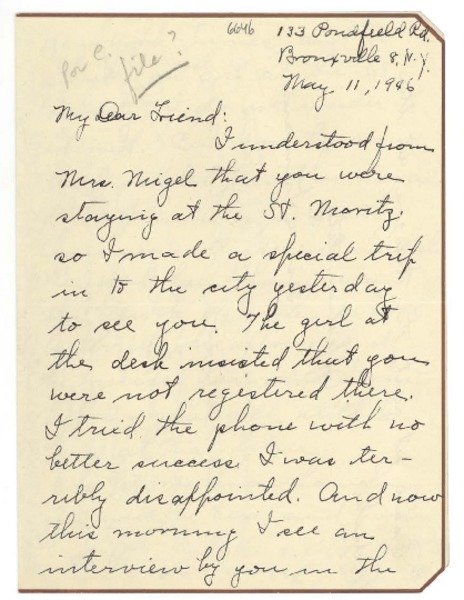 6646
133 Pondfield Rd.
Bronxville 8, N.Y.
May 11, 1946
file?
My Dear Friend:
I understood from
Mrs. Migel that you were
staying at the St. Moritz.
so I made a special trip
in to the city yesterday
to see you. The girl at
the desk insisted that you
were not regestered there.
I tried the phone with no
better success. I was ter-
ribly disappointed. And now
this morning I see an
interview by you in the